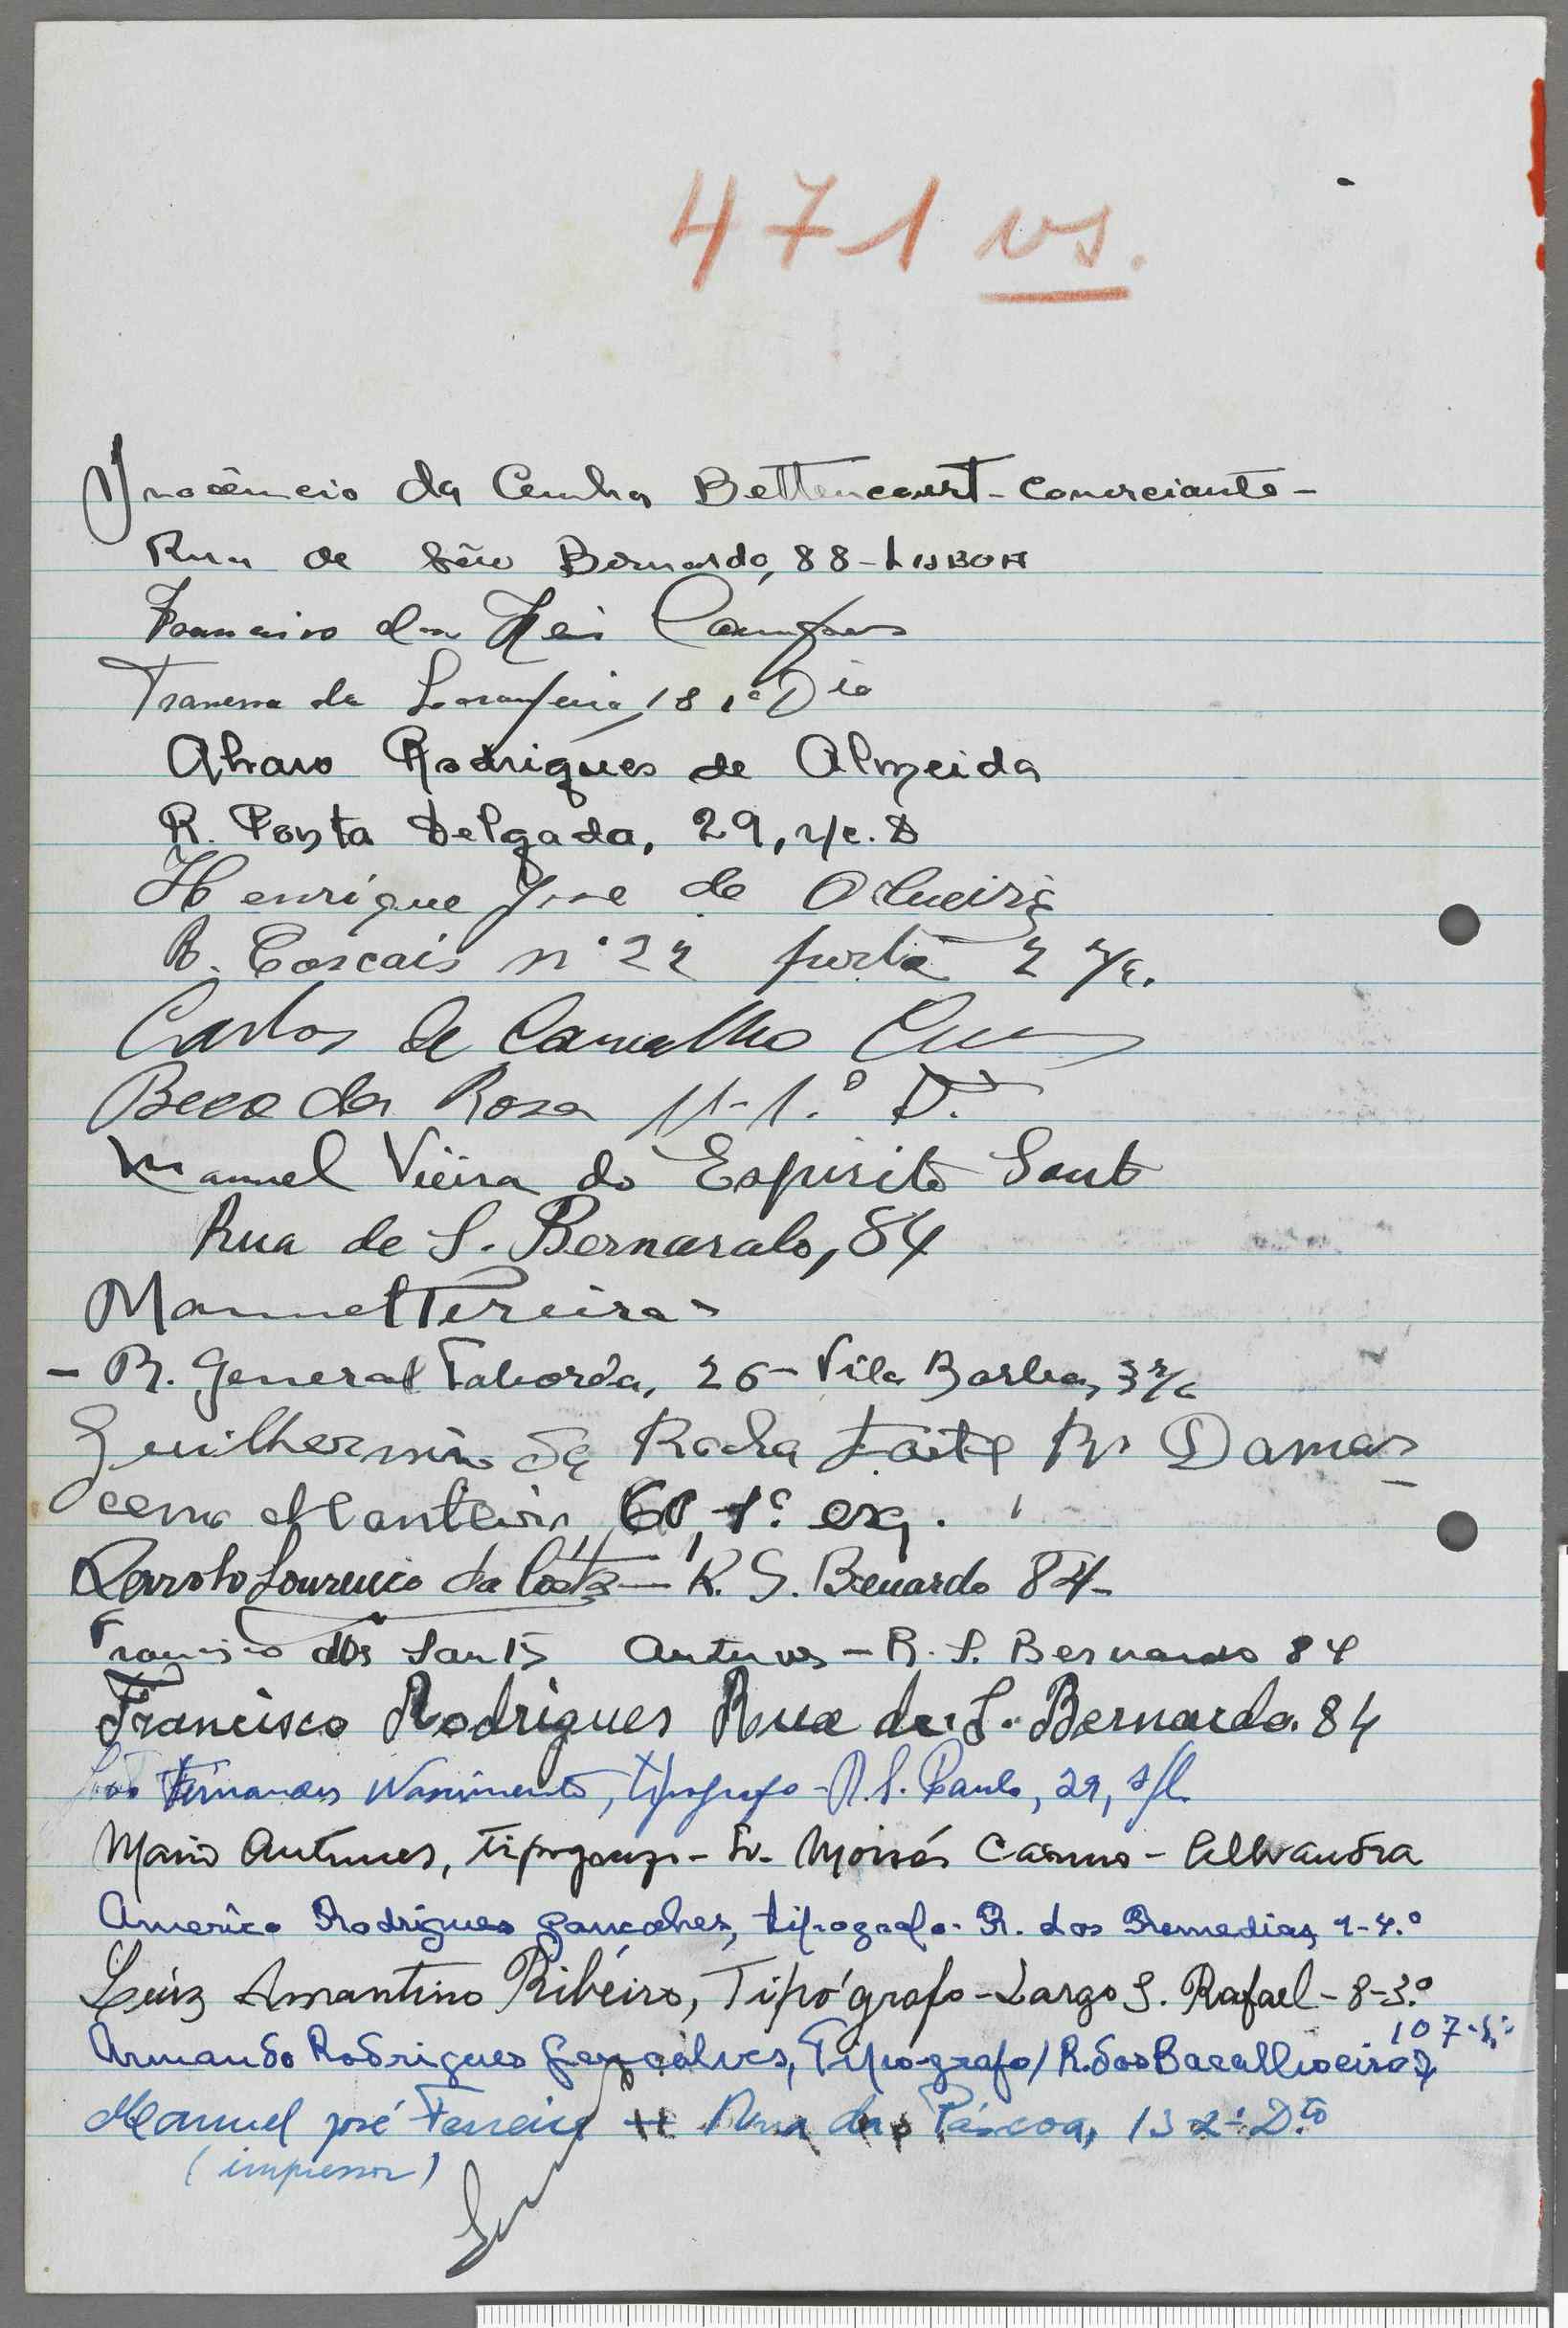 471 vs.
Inocêncio da Cunha Bettencourt - Comerciante -
Rua de São Bernardo, 88 - LISBOA
Francisco dos Reis Campos
Travessa da Laranjeira, 18 1º Dto
Alvaro Rodrigues de Almeida
R. Ponta Delgada, 29, r/c. D
Henrique José de Oliveira
R. Cascais nº 22 porta 2 r/c.
Carlos de Carvalho
Beco da Rosa 11-1.º D.to
Manuel Vieira do Espirito Santo
Rua de S. Bernardo, 84
Manuel Pereira
- R. General Taborda, 26 - Vila Barbas, 3 r/c
Guilhermino da Rocha R. Damas
ceno Monteiro, 60, 1º esq.
Lourenço da Costa - R. S. Bernardo 84 -
Francisco dos Santos Antunes - R. S. Bernardo 84
Francisco Rodrigues Rua de S. Bernardo. 84
João Fernandes Nascimento, tipografo - R. S. Paulo, 29, s/l.
Mario Antunes, tipografo - Moisés Carmo - Alhandra
Americo Rodrigues Gonçalves, tipografo - R. dos Remedios, 1-4.º
Luiz Amantino Ribeiro, Tipógrafo - Largo S. Rafael - 8-3.º
107-5.º
Armando Rodrigues Gonçalves, Tipografo / R. dos Bacalhoeiros,
Manuel José Ferreira - Rua da Páscoa, 13 2º D.to
(impressor)